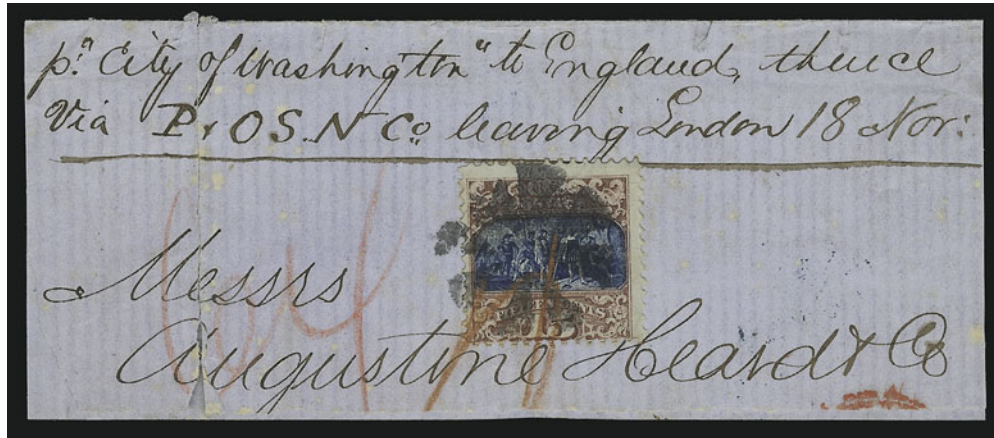 pr. "City of Washington" to England, thence
Via P & O S. N Co. leaving London 18 Nov:
Messrs
Augustine Heard & Co